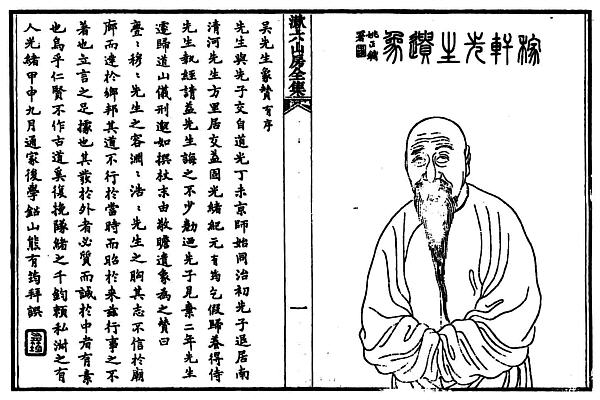 稼軒先生遺象
漱六山房全集
一
吳先生象贊有序
先生與先子交自道光丁未京師始同治初先子退居南
清河先生方里居交益固光緒紀元有筠乞假歸養得侍
先生執經請益先生誨之不少勌迺先子見棄二年先生
遽歸道山儀刑邈如杖末由敬瞻遺象為之贊曰
穆〻先生之容淵〻浩〻先生之胸其志不信於廟
廊而達於鄉邦其道不行於當時而昭於來茲行事之不
著也立言之足據也其發於外者必質而誠於中者有素
也烏乎仁賢不作古道奚復挽隊緒之千鈞賴私淑之有
人光緒甲申九月通家後學鉛山熊有筠拜譔